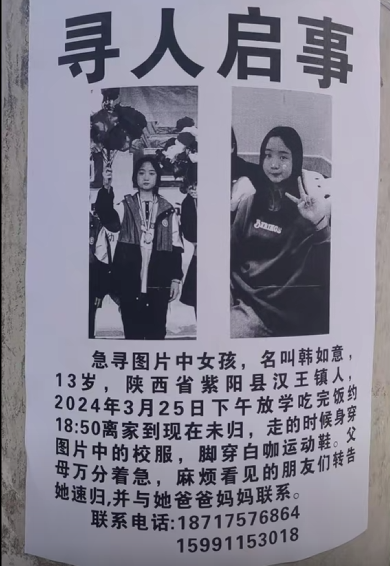 寻人启事
急寻图片中女孩，名叫韩如意，
13岁，陕西省紫阳县汉王镇人，
2024年3月25日下午放学吃完饭约
18:50离家到现在未归，走的时候身穿
图片中的校服，脚穿白咖运动鞋。父
母万分着急，麻烦看见的朋友们转告
她速归,并与她爸爸妈妈联系。
联系电话:18717576864
15991153018